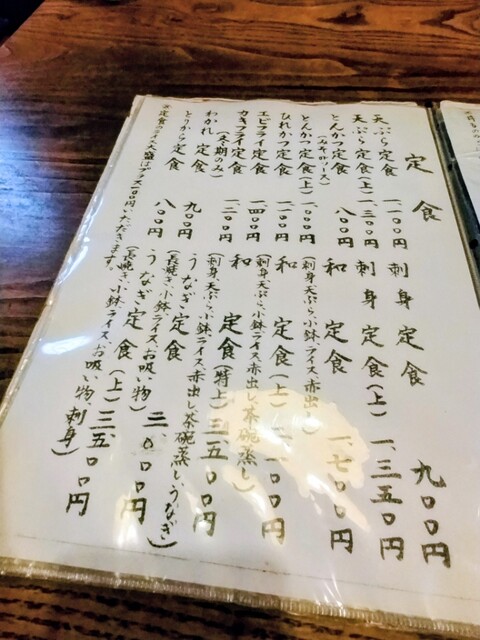 定食
天ぷら定食 一、一〇〇円
天ぷら定食(上) 一、三〇〇円
とんかつ定食 八〇〇円
(みそかソース)
とんかつ定食(上) 一、〇〇〇円
ひれかつ定食
エビフライ定食 一、四〇〇円
カキフライ定食 一、二〇〇円
(冬期のみ)
わかれ定食 九〇〇円
とりから定食 八〇〇円
※定食のライス大盛はプラス100円いただきます。
刺身定食 九〇〇円
刺身定食(上) 一、三五〇円
和定食 一、七〇〇円
(刺身天ぷら、小鉢、ライス、赤出し)
和定食(上) 二、一〇〇円
(刺身、天ぷら、小鉢、ライス、赤出し、茶碗蒸し)
和定食(特上) 三、五〇〇円
(刺身、天ぷら、小鉢、ライス、赤出し、茶碗蒸し、うなぎ)
うなぎ定食 三、〇〇〇円
(長焼き、小鉢、ライス、お吸い物)
うなぎ定食(上) 三、五〇〇円
(長焼き、小鉢、ライス、お吸い物、刺身)